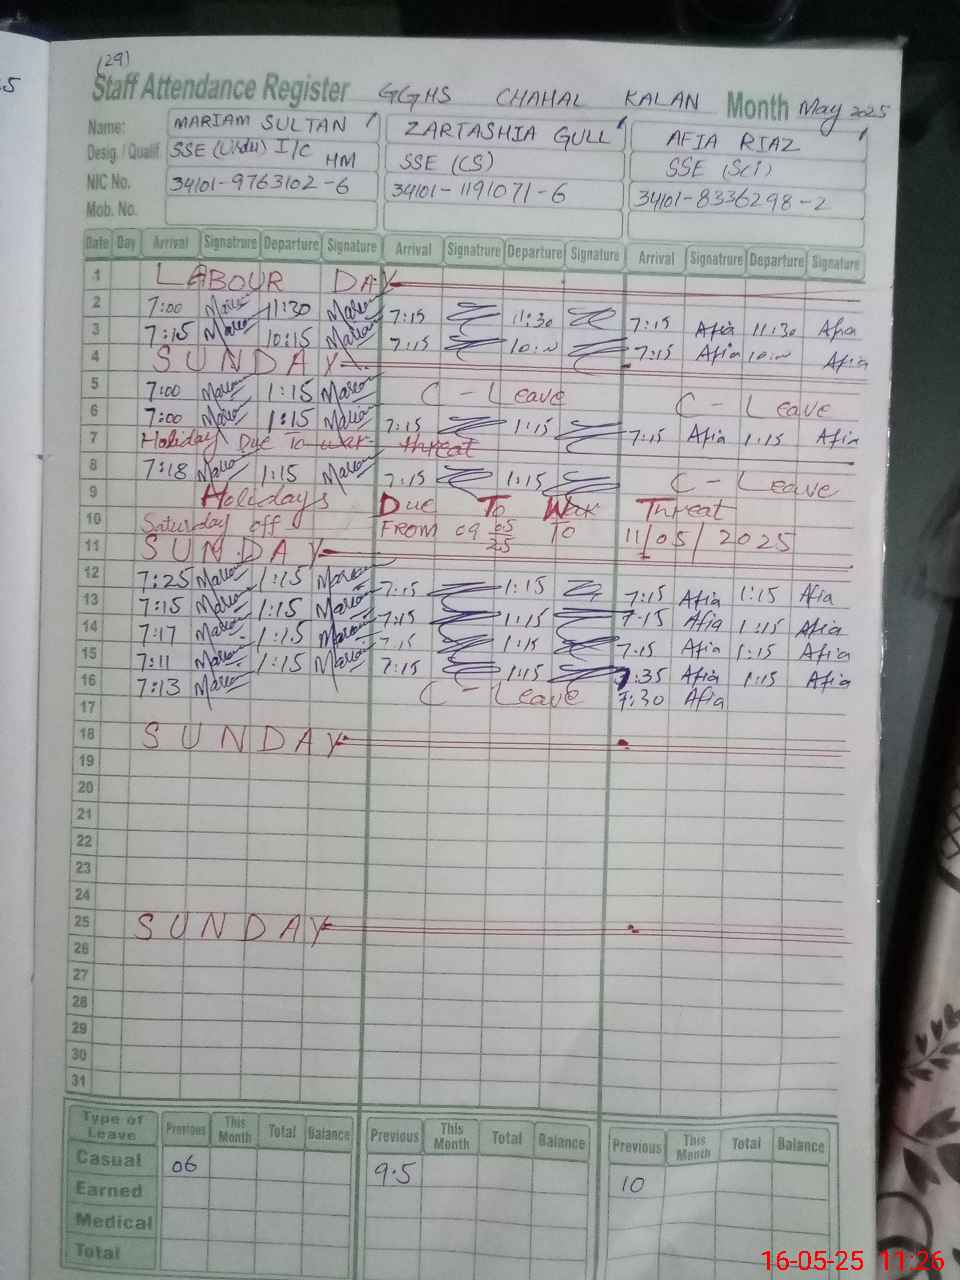 (29)
Staff Attendance Register GGHS CHAHAL KALAN Month May 2025
Name: MARIAM SULTAN ZARTASHIA GULL AFIA RIAZ
Desig. / Qualif. SSE (Urdu) I/C HM SSE (CS) SSE (Sci)
NIC No. 34101-9763102-6 34101-1191071-6 34101-8336298-2
Mob. No.
Date Day Arrival Signatrure Departure Signature Arrival Signatrure Departure Signature Arrival Signatrure Departure Signature
1 LABOUR DAY
2 7:00 11:30 7:15 11:30 7:15 Afia 11:30 Afia
3 7:15 10:15 7:15 7:15 Afia Afia
4 SUNDAY
5 7:00 1:15 C-Leave C-Leave
6 7:00 1:15 7:15 1:15 7:15 Afia 1:15 Afia
7 Holiday Due To War threat
8 7:18 1:15 7:15 1:15 C-Leave
9 Holidays Due To War Threat
10 Saturday off FROM 09 05 25 TO 11/05/2025
11 SUNDAY
12 7:25 1:15 7:15 1:15 7:15 Afia 1:15 Afia
13 7:15 1:15 7:15 1:15 7:15 Afia 1:15 Afia
14 7:17 1:15 7:15 1:15 7:15 Afia 1:15 Afia
15 7:11 1:15 7:15 1:15 7:35 Afia 1:15 Afia
16 7:13 C-Leave 7:30 Afia
17
18 SUNDAY
19
20
21
22
23
24
25 SUNDAY
26
27
28
29
30
31
Type of Leave Previous This Month Total Balance Previous This Month Total Balance Previous This Month Total Balance
Casual 06 9.5 10
Earned
Medical
Total
16-05-25 11:26